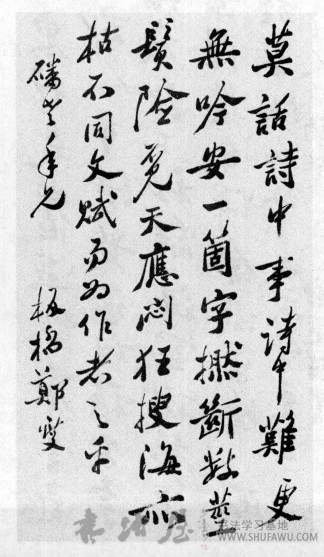 莫話詩中事詩中難更
無吟安一箇字撚斷數莖
鬚險覓天應悶狂搜海亦
枯不同文賦易為作者之乎
磻老年兄 板橋鄭燮
书法屋
书法学习基地
WWW.SHUFAWU.COM